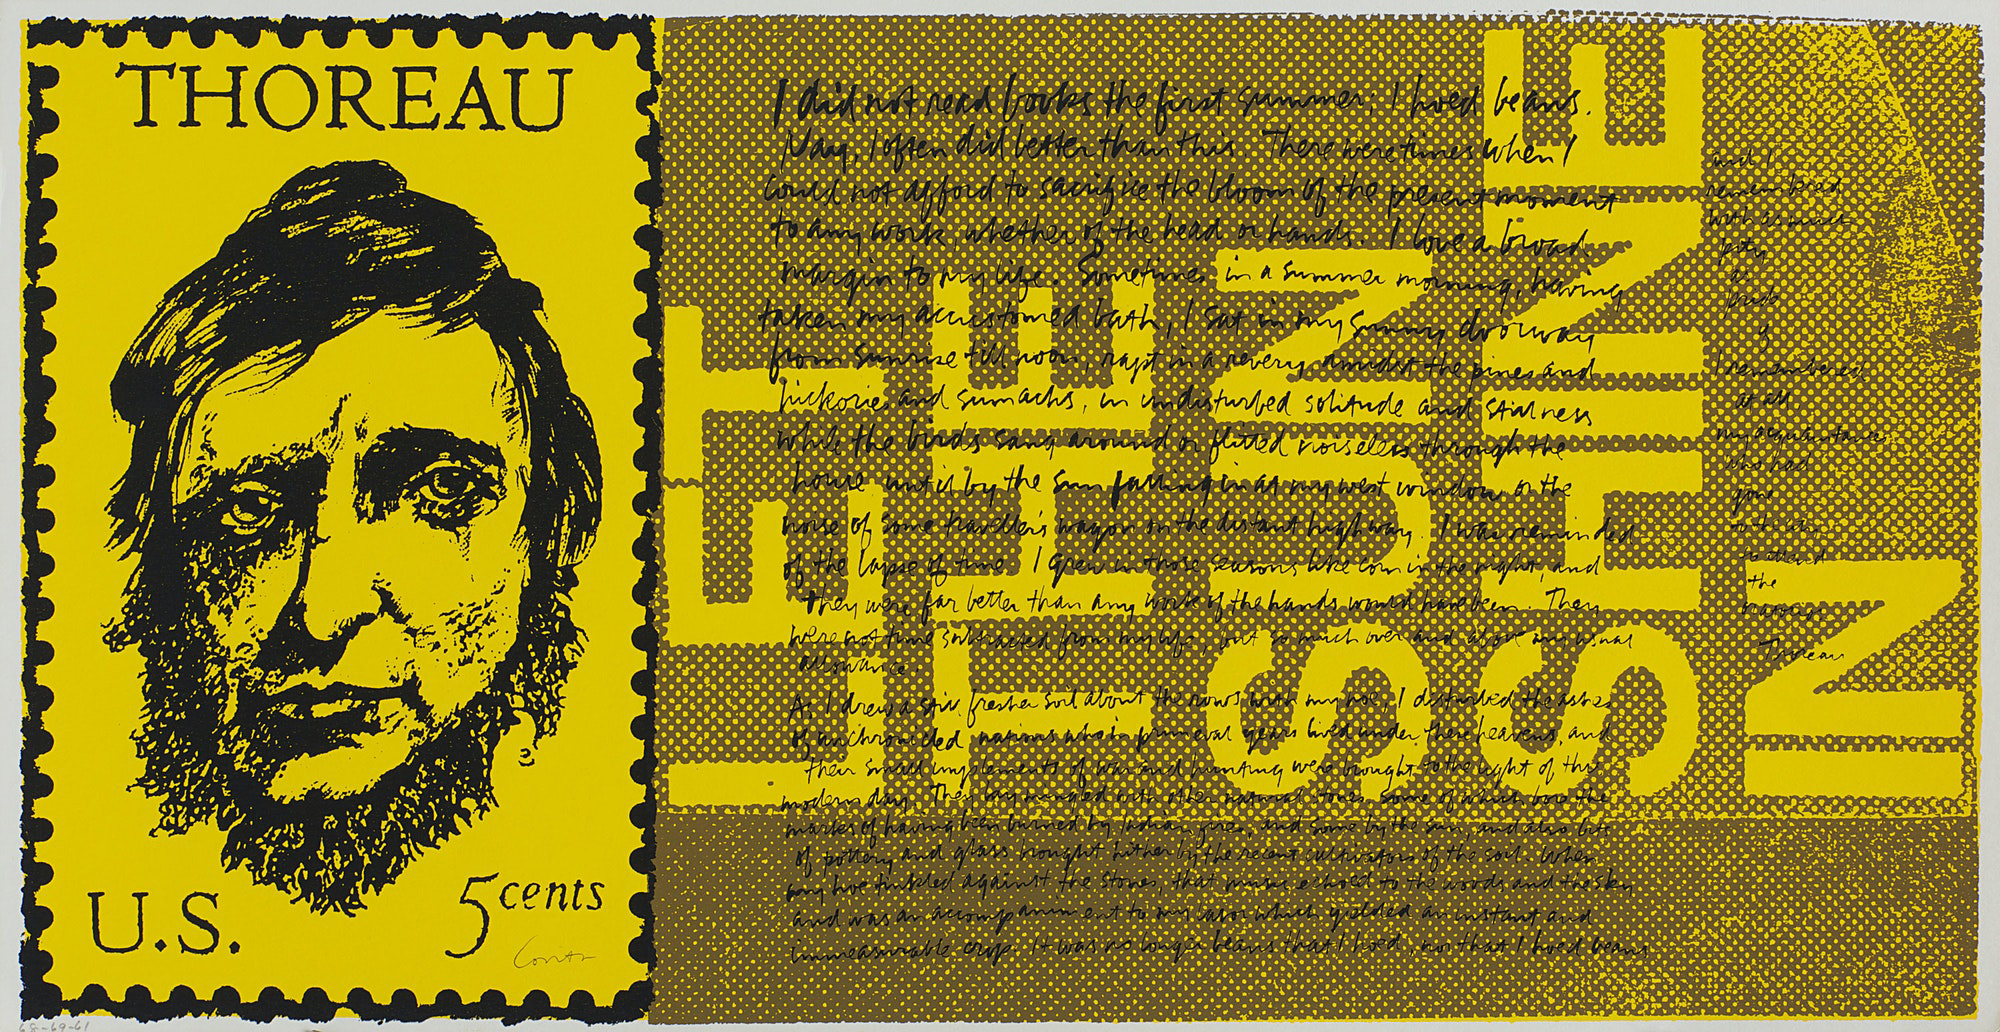 THOREAU
U.S.
5 cents
Corita
LET
THE
SUN
SHINE
IN
I did not read books the first summer; I hoed beans.
Nay, I often did better than this. There were times when I
could not afford to sacrifice the bloom of the present moment
to any work, whether of the head or hands. I love a broad
margin to my life. Sometimes in a summer morning, having
taken my accustomed bath, I sat in my sunny doorway
from sunrise till noon, rapt in a revery amidst the pines and
hickories and sumachs, in undisturbed solitude and stillness
while the birds sang around or flitted noiseless through the
house until by the sun falling in at my west window or the
noise of some traveller's wagon on the distant highway. I was reminded
of the lapse of time. I grew in those seasons like corn in the night, and
they were far better than any work of the hands would have been. They
were not time subtracted from my life, but so much over and above my usual
allowance.
As I drew a still fresher soil about the rows with my hoe, I disturbed the ashes
of unchronicled nations who in primeval years lived under these heavens, and
their small implements of war and hunting were brought to the light of this
modern day. They lay mingled with other natural stones some of which bore the
marks of having been burned by Indian fires, and some by the sun, and also bits
of pottery and glass brought hither by the recent cultivators of the soil. When
my hoe tinkled against the stones, that music echoed to the woods and the sky
and was an accompaniment to my labor which yielded an instant and
immeasurable crop. It was no longer beans that I hoed, nor that I hoed beans
and I
remembered
with as much
pity
as
pride
if
I remembered
at all
my acquaintances
who had
gone
to the city
to attend
the
oratorios
Thoreau
68-69-61